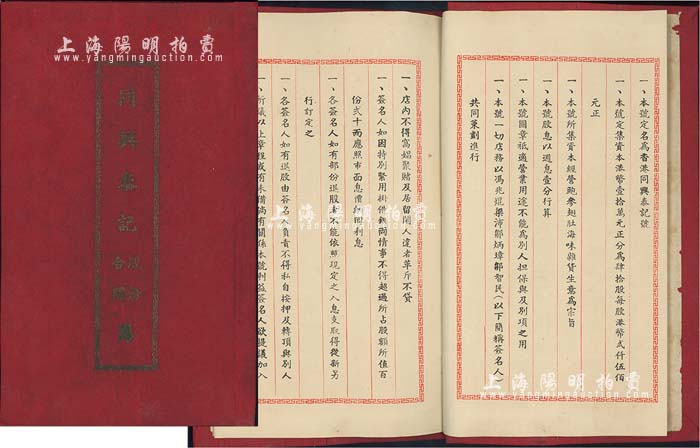 上海陽明拍賣
www.yangmingauction.com
同興泰記
股份
合
萬
一、本號定名為香港同興泰記號
一、本號定集資本港幣壹拾萬元正分為肆拾股每股港幣弍仟伍佰
元正
一、本號所集資本經營鮑參翅肚海味雜貨生意為宗旨
一、本號股息以週息壹分行算
一、本號圖章祇適營業用途不能為別人担保與及別項之用
一、本號一切店務以馮兆焜梁沛鄒炳璋鄒智民(以下簡稱簽名人)
共同策劃進行
一、店內不得窩娼聚賭及居留閒人違者革斥不貸
一、簽名人如因特別緊用掛借銀両情事不得超過所占股額所值百
份弍十而應照市面息價納回利息
一、各簽名人如有部份退股者不能依照現定之入息支取得從新另
行訂定之
一、各簽名人如有退股由簽名人負責不得私自按押及轉項與別人
一、所議以上章程或有未備倘有關係本號利益簽名人欲提議加入
上海陽明拍賣
www.yangmingauction.com
上海陽明拍賣
www.yangmingauction.com